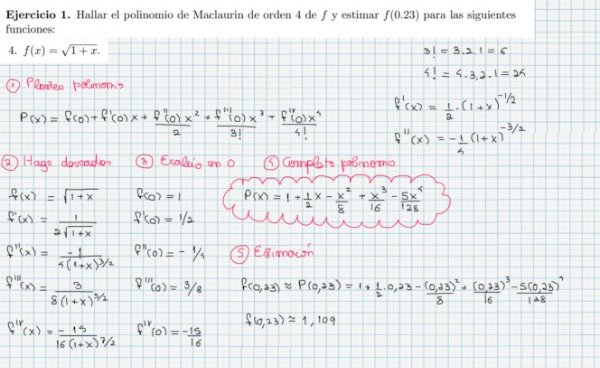 Ejercicio 1. Hallar el polinomio de Maclaurin de orden 4 de f y estimar f(0.23) para las siguientes
funciones:
4. f(x) = √(1+x).
3! = 3.2.1 = 6
4! = 4.3.2.1 = 24
f'(x) = 1/2 . (1+x)^(-1/2)
f''(x) = -1/4 (1+x)^(-3/2)
① Planteo polinomio
P(x) = f(0) + f'(0)x + f''(0)x²/2 + f'''(0)x³/3! + f^IV(0)x⁴/4!
② Hago derivadas
f(x) = √(1+x)
f'(x) = 1/(2√(1+x))
f''(x) = -1/(4(1+x)^(3/2))
f'''(x) = 3/(8(1+x)^(5/2))
f^IV(x) = -15/(16(1+x)^(7/2))
③ Evalúo en 0
f(0) = 1
f'(0) = 1/2
f''(0) = -1/4
f'''(0) = 3/8
f^IV(0) = -15/16
④ Completo polinomio
P(x) = 1 + 1/2 x - x²/8 + x³/16 - 5x⁴/128
⑤ Estimación
f(0,23) ≈ P(0,23) = 1 + 1/2 . 0,23 - (0,23)²/8 + (0,23)³/16 - 5(0,23)⁴/128
f(0,23) ≈ 1,109